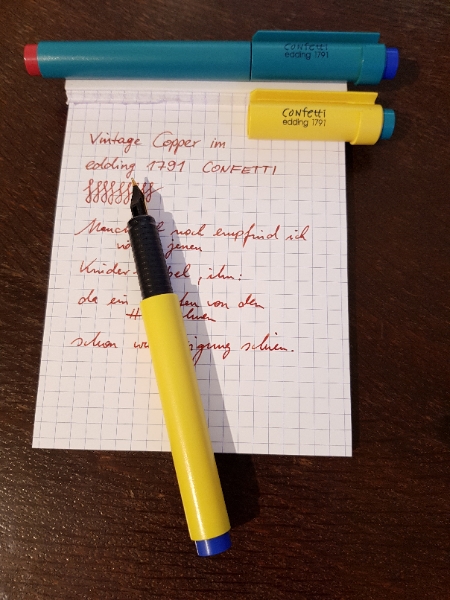 Confetti
edding 1791
Confetti
edding 1791
Vintage Copper im
edding 1791 CONFETTI
noch empfind ich
jenen
ihn:
da ein von den
schon schien.